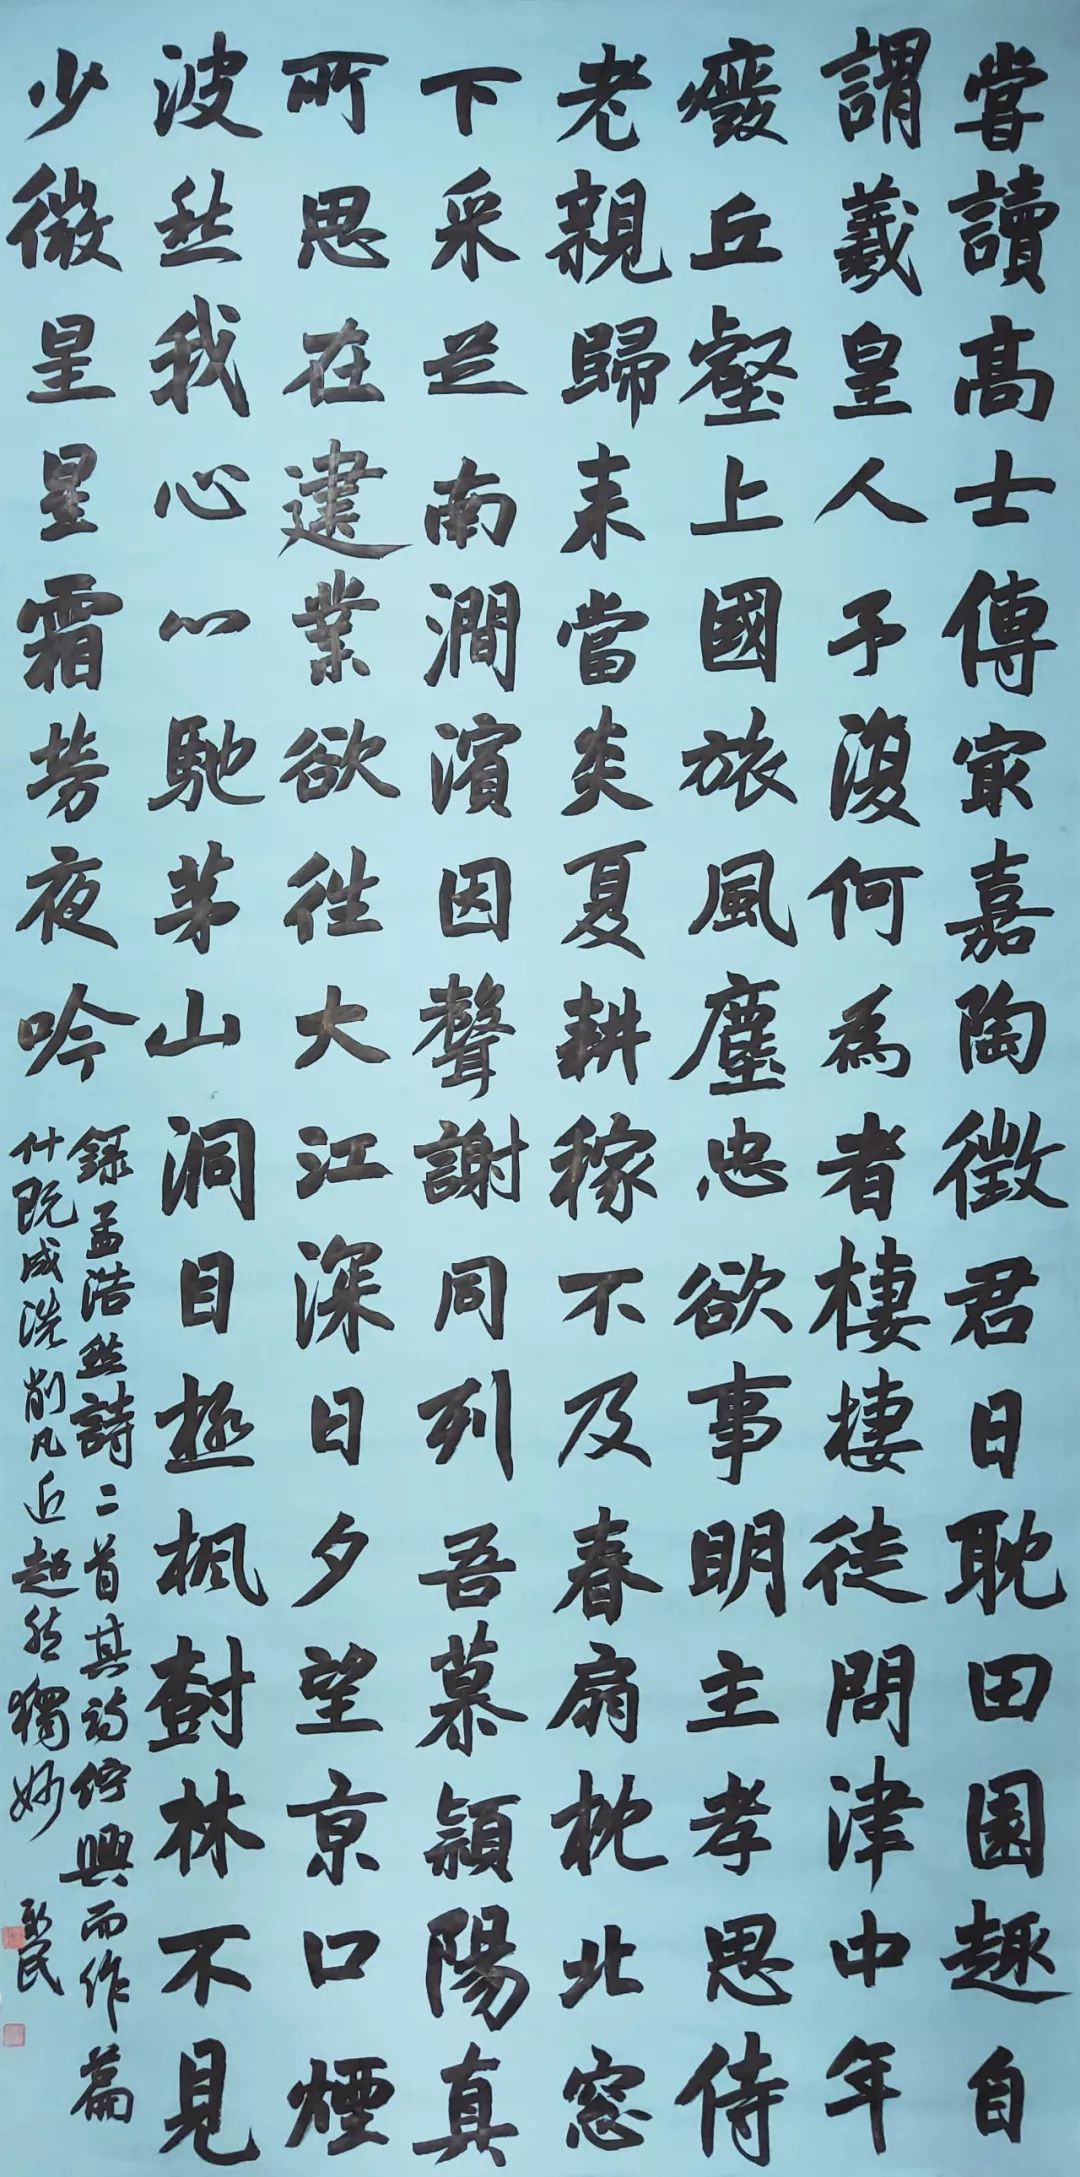 嘗讀高士傳最嘉陶徵君日耽田園趣自
謂羲皇人予復何為者棲棲徒問津中年
廢丘壑上國旅風塵忠欲事明主孝思侍
老親歸来當炎夏耕稼不及春扇枕北窓
下采芝南澗濱因聲謝同列吾慕潁陽真
所思在建業欲往大江深日夕望京口煙
波愁我心心馳茅山洞目極楓樹林不見
少微星星霜勞夜吟
錄孟浩然詩二首其詩佇興而作篇
什既成洗削凡近超然獨妙
民